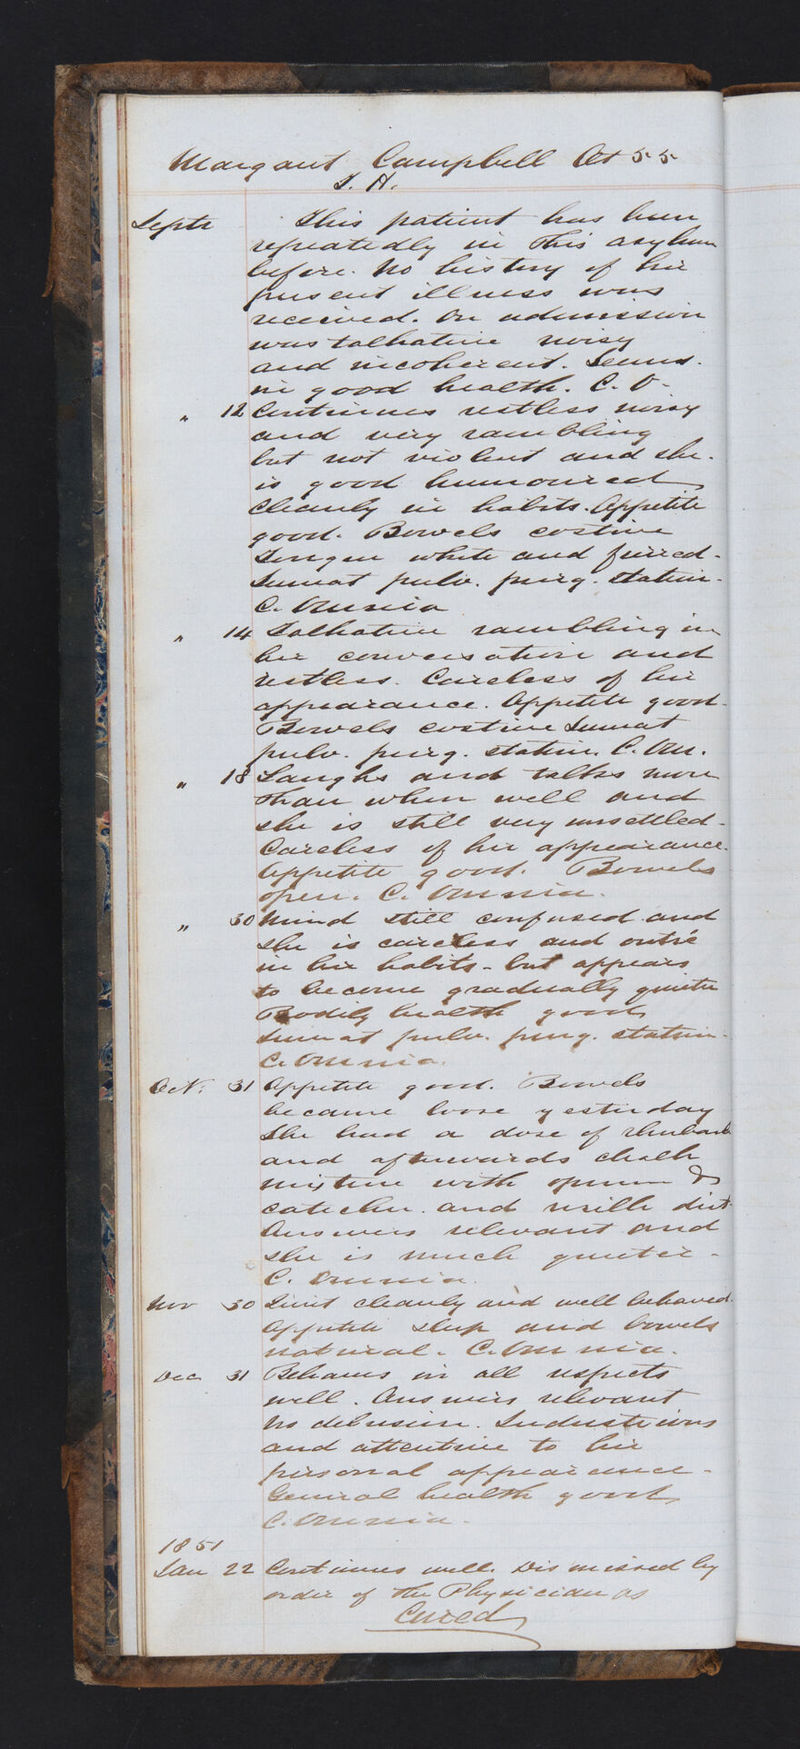 Margaret Campbell Æt 55
I. H.
Septr This patient has been
repeatedly in this asylum
before. No history of her
present illness was
received. On admission
was talkative noisy
and incoherent. Seems
in good health. C. O.
" 12 Continues restless noisy
and very rambling
but not violent and she
is good humoured
Cleanly in habits. Appetite
good. Bowels costive
Tongue white and furred.
Sumat pulv. purg. statim.
C. Omnia
" 14 Talkative rambling in
her conversation and
restless. Careless of her
appearance. Appetite good.
Bowels costive Sumat
pulv. purg. statim. C. Om.
" 18 Laughs and talks more
than when well and
she is still very unsettled.
Careless of her appearance.
Appetite good. Bowels
open. C. Omnia.
" 30 Mind still confused and
she is careless and outré
in her habits - but appears
to become gradually quieter
Bodily health good
Sumat pulv. purg. statim.
C. Omnia.
Oct. 31 Appetite good. Bowels
became loose yesterday
She had a dose of rhubarb
and afterwards chalk
mixture with opium &
catechu. and milk diet.
Answers relevant and
she is much quieter -
C. Omnia.
Nov 30 Quiet cleanly and well behaved.
Appetite sleep and bowels
natural. C. Omnia.
Dec 31 Behaves in all respects
well. Answers relevant
No delusion. Industrious
and attentive to her
personal appearance -
General health good
C. Omnia.
1851
Jan 22 Continues well. Dismissed by
order of the Physician as
Cured